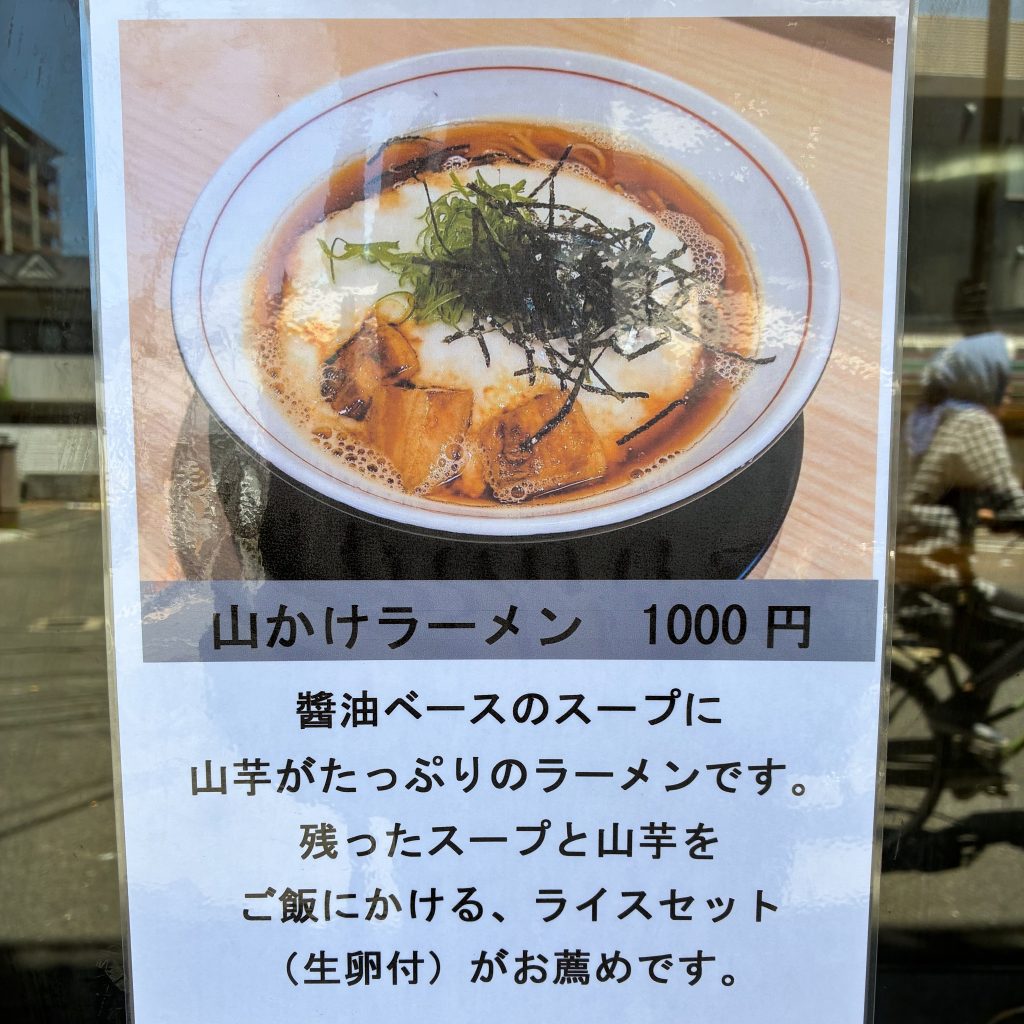 山かけラーメン　1000円
醬油ベースのスープに
山芋がたっぷりのラーメンです。
残ったスープと山芋を
ご飯にかける、ライスセット
（生卵付）がお薦めです。